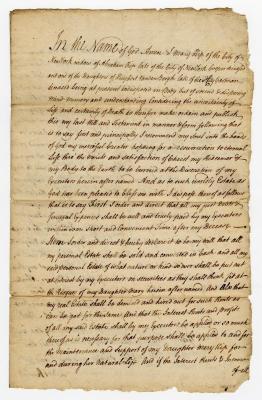 In the Name of God Amen I Mary Kip of the City of
New York widow of Abraham Kip late of the City of New York
and one of the Daughters of late of the City
being at present indisposed in Body but of sound & disposing
mind memory and understanding considering the uncertainty of
Life and certainty of Death do therefore make ordain and publish
this my last Will and Testament in manner & form following that
is to say first and principally I recommend my Soul into the hands
of God my merciful Creator hoping for a resurrection to eternal
Life thro the merits and satisfaction of Christ my Redeemer &
my Body to the Earth to be buried at the Discretion of my
Executors herein after named And as to such worldly Estate as
God has been pleased to bless me with I dispose thereof as follows
that is to say First I order and direct that all my just Debts &
funeral Expences shall be well and truely paid by my Executors
within some short and Convenient Time after my Decease
Item I order and direct & hereby declare it to be my will that all
my personal Estate shall be sold and converted into Cash and all my
personal Estate of what nature or kind soever shall be put out
at Interest by my Executors on securities as they shall think fit at
the Risque of my Daughter Mary herein after named And also that
my real Estate shall be demised and hired out for such Rents as
can be got for the same And that the Interest Rents and profits
of all my said Estate shall by my Executors be applied or so much
thereof as is necessary for that purpose shall be applied to and for
the Maintenance and Support of my Daughter Mary Kip for
and during her Natural Life And if the Interest Rents &
of all